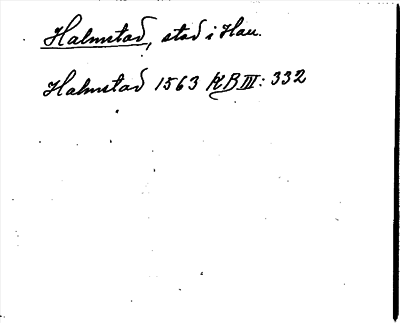 Halmstad, stad i Hall.
Halmstad 1563 KB III: 332